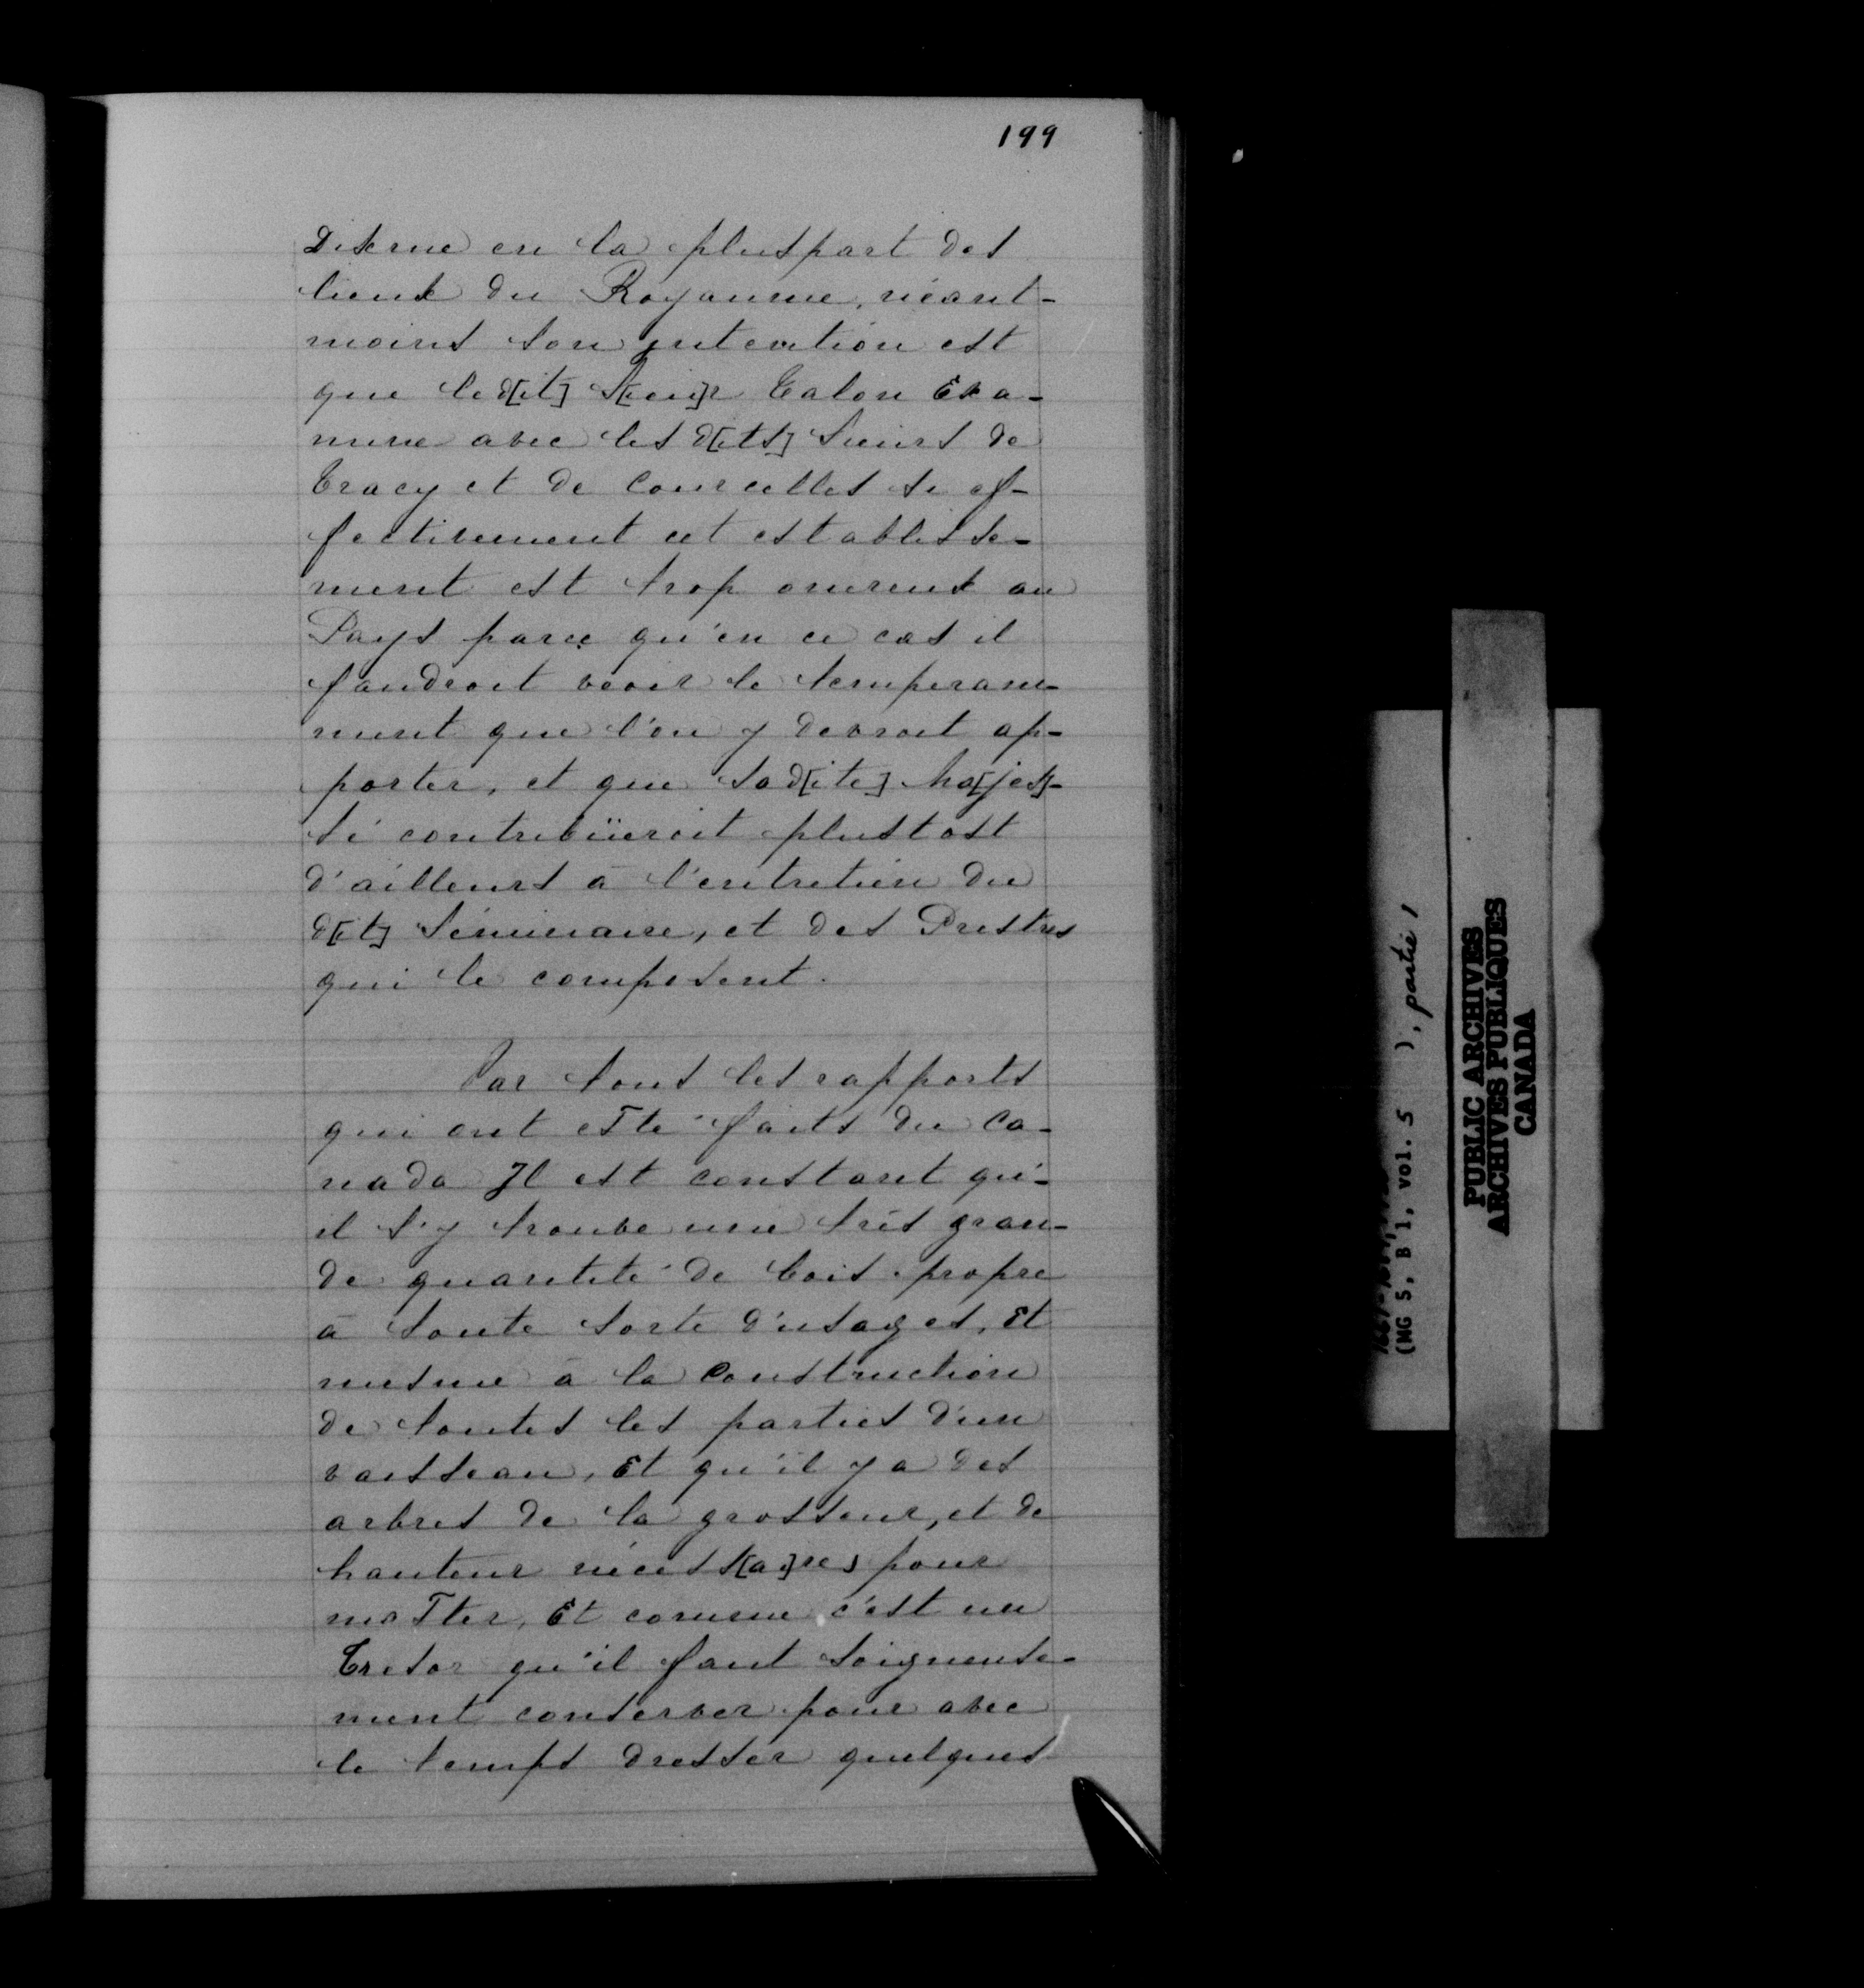 199
Dixme en la pluspart des
lieux du Royaume, néant-
moins son jntention est
que led[it] S[ieu]r Talon Exa-
mine avec les d[its] Sieurs de
Tracy et de Courcelles si ef-
fectivement cet establisse-
ment est trop onereux au
Pays parce qu'en ce cas il
faudroit veoir le temperam-
ment que l'on y devroit ap-
porter, et que sad[ite] Ma[jes]-
té contribüeroit plustost
d'ailleurs à l'entretien du
d[it] Séminaire, et des Prestres
qui le composent.
Par tous les rapports
qui ont esté faits du Ca-
nada Jl est constant qu'-
il s'y trouve une très gran-
de quantité de bois propre
à toute sorte d'usages, Et
mesme à la Construction
de toutes les parties d'un
vaisseau, Et qu'il y a des
arbres de la grosseur, et de
hauteur nécess[ai]res pour
master, Et comme c'est un
Tresor qu'il faut soigneuse-
ment conserver pour avec
le temps dresser quelques
(MG 5, B 1, vol. 5 ), partie 1
PUBLIC ARCHIVES
ARCHIVES PUBLIQUES
CANADA